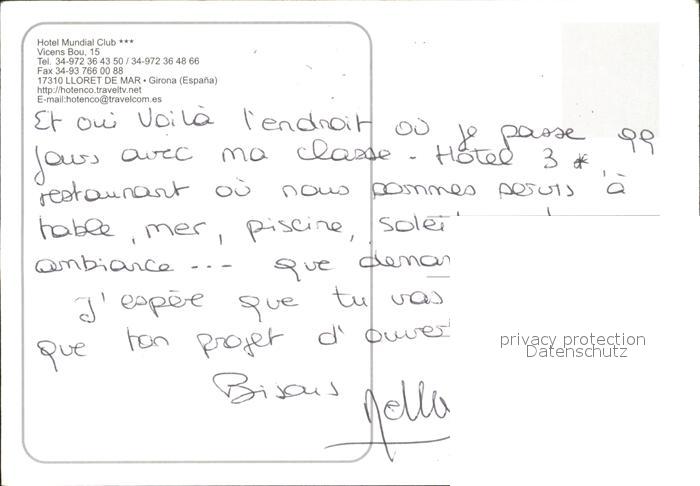 Hotel Mundial Club ***
Vicens Bou, 15
Tel. 34-972 36 43 50 / 34-972 36 48 66
Fax 34-93 766 00 88
17310 LLORET DE MAR • Girona (España)
http://hotenco.traveltv.net
E-mail:hotenco@travelcom.es
Et oui Voilà l'endroit où je passe 99
jours avec ma classe - Hôtel 3 *
restaurant où nous sommes servis à
table, mer, piscine, solei
ambiance --- que deman
J'espère que tu vas
que ton projet d'ouver
Bisous
privacy protection
Datenschutz